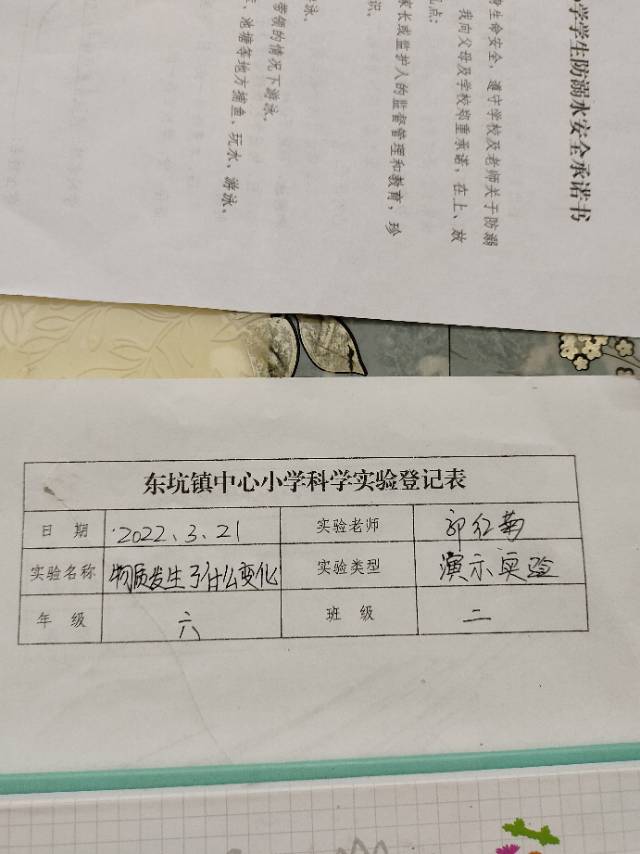 小学学生防溺水安全承诺书
生命安全，遵守学校及老师关于防溺
我向父母及学校郑重承诺，在上、放
几点：
家长或监护人的监督管理和教育，珍
识。
带领的情况下游泳。
泳。
、池塘等地方捕鱼、玩水、游泳。
东坑镇中心小学科学实验登记表
日 期 2022.3.21 实验老师 郭红菊
实验名称 物质发生了什么变化 实验类型 演示实验
年 级 六 班 级 二